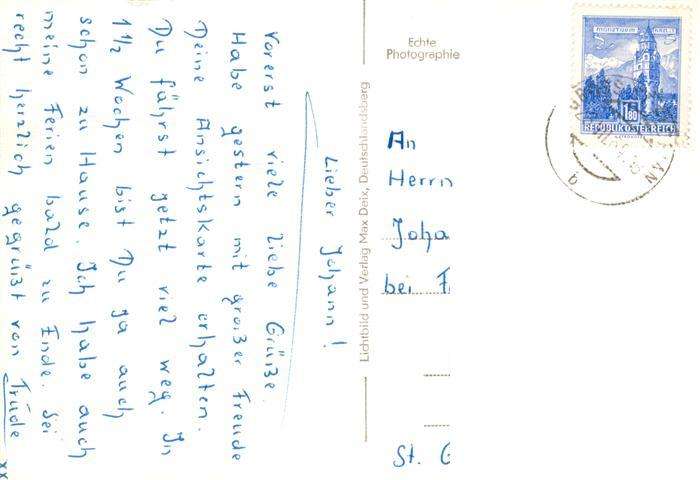 Lieber Johann!
Vorerst viele liebe Grüße.
Habe gestern mit großer Freude
Deine Ansichtskarte erhalten.
Du fährst jetzt viel weg. In
1½ Wochen bist Du ja auch
schon zu Hause. Ich habe auch
meine Ferien bald zu Ende. Sei
recht herzlich gegrüßt von Trude
xx
Lichtbild und Verlag Max Deix, Deutschlandsberg
Echte
Photographie
MÜNZTURM HALL I. T.
S 1.80
REPUBLIK ÖSTERREICH
b
An
Herrn
Joha
bei
St. G